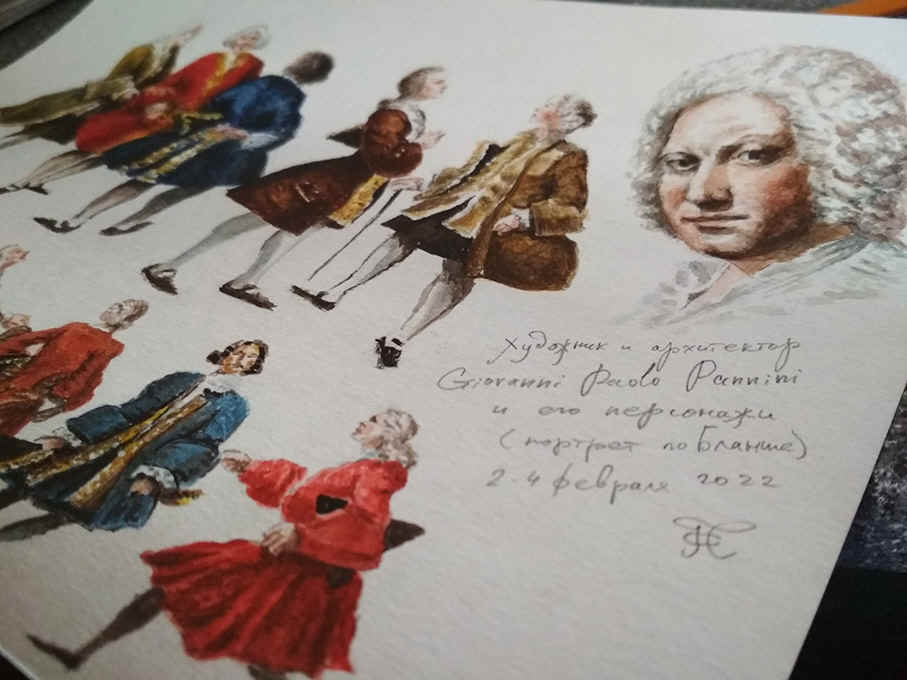 художник и архитектор
Giovanni Paolo Pannini
и его персонажи
(портрет по Бланше)
2-4 февраля 2022